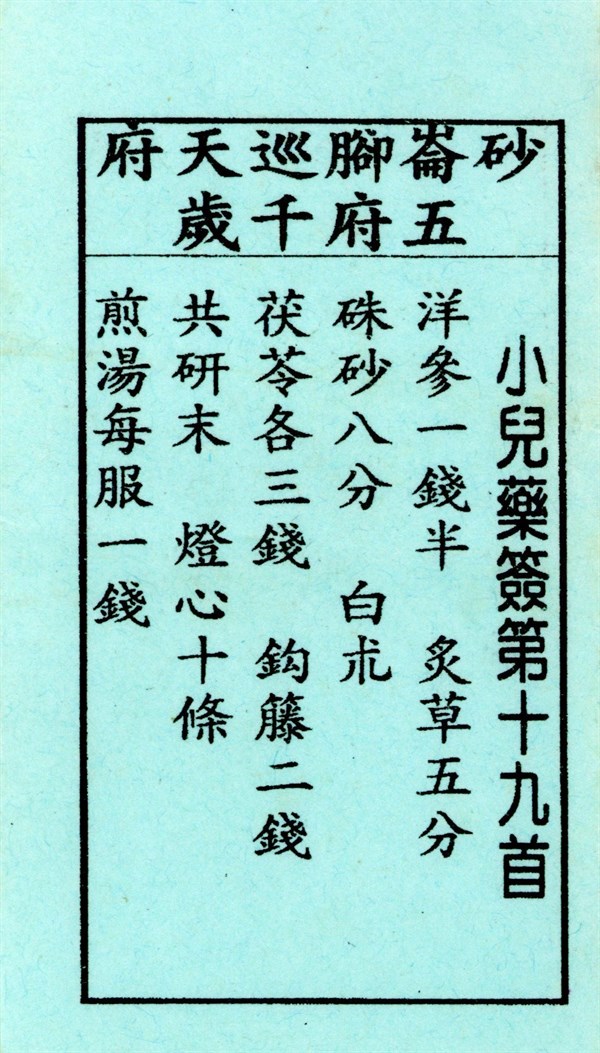 砂崙腳巡天府
五府千歲
小兒藥簽第十九首
洋參一錢半　炙草五分
硃砂八分　白朮
茯苓各三錢　鈎藤二錢
共研末　燈心十條
煎湯每服一錢